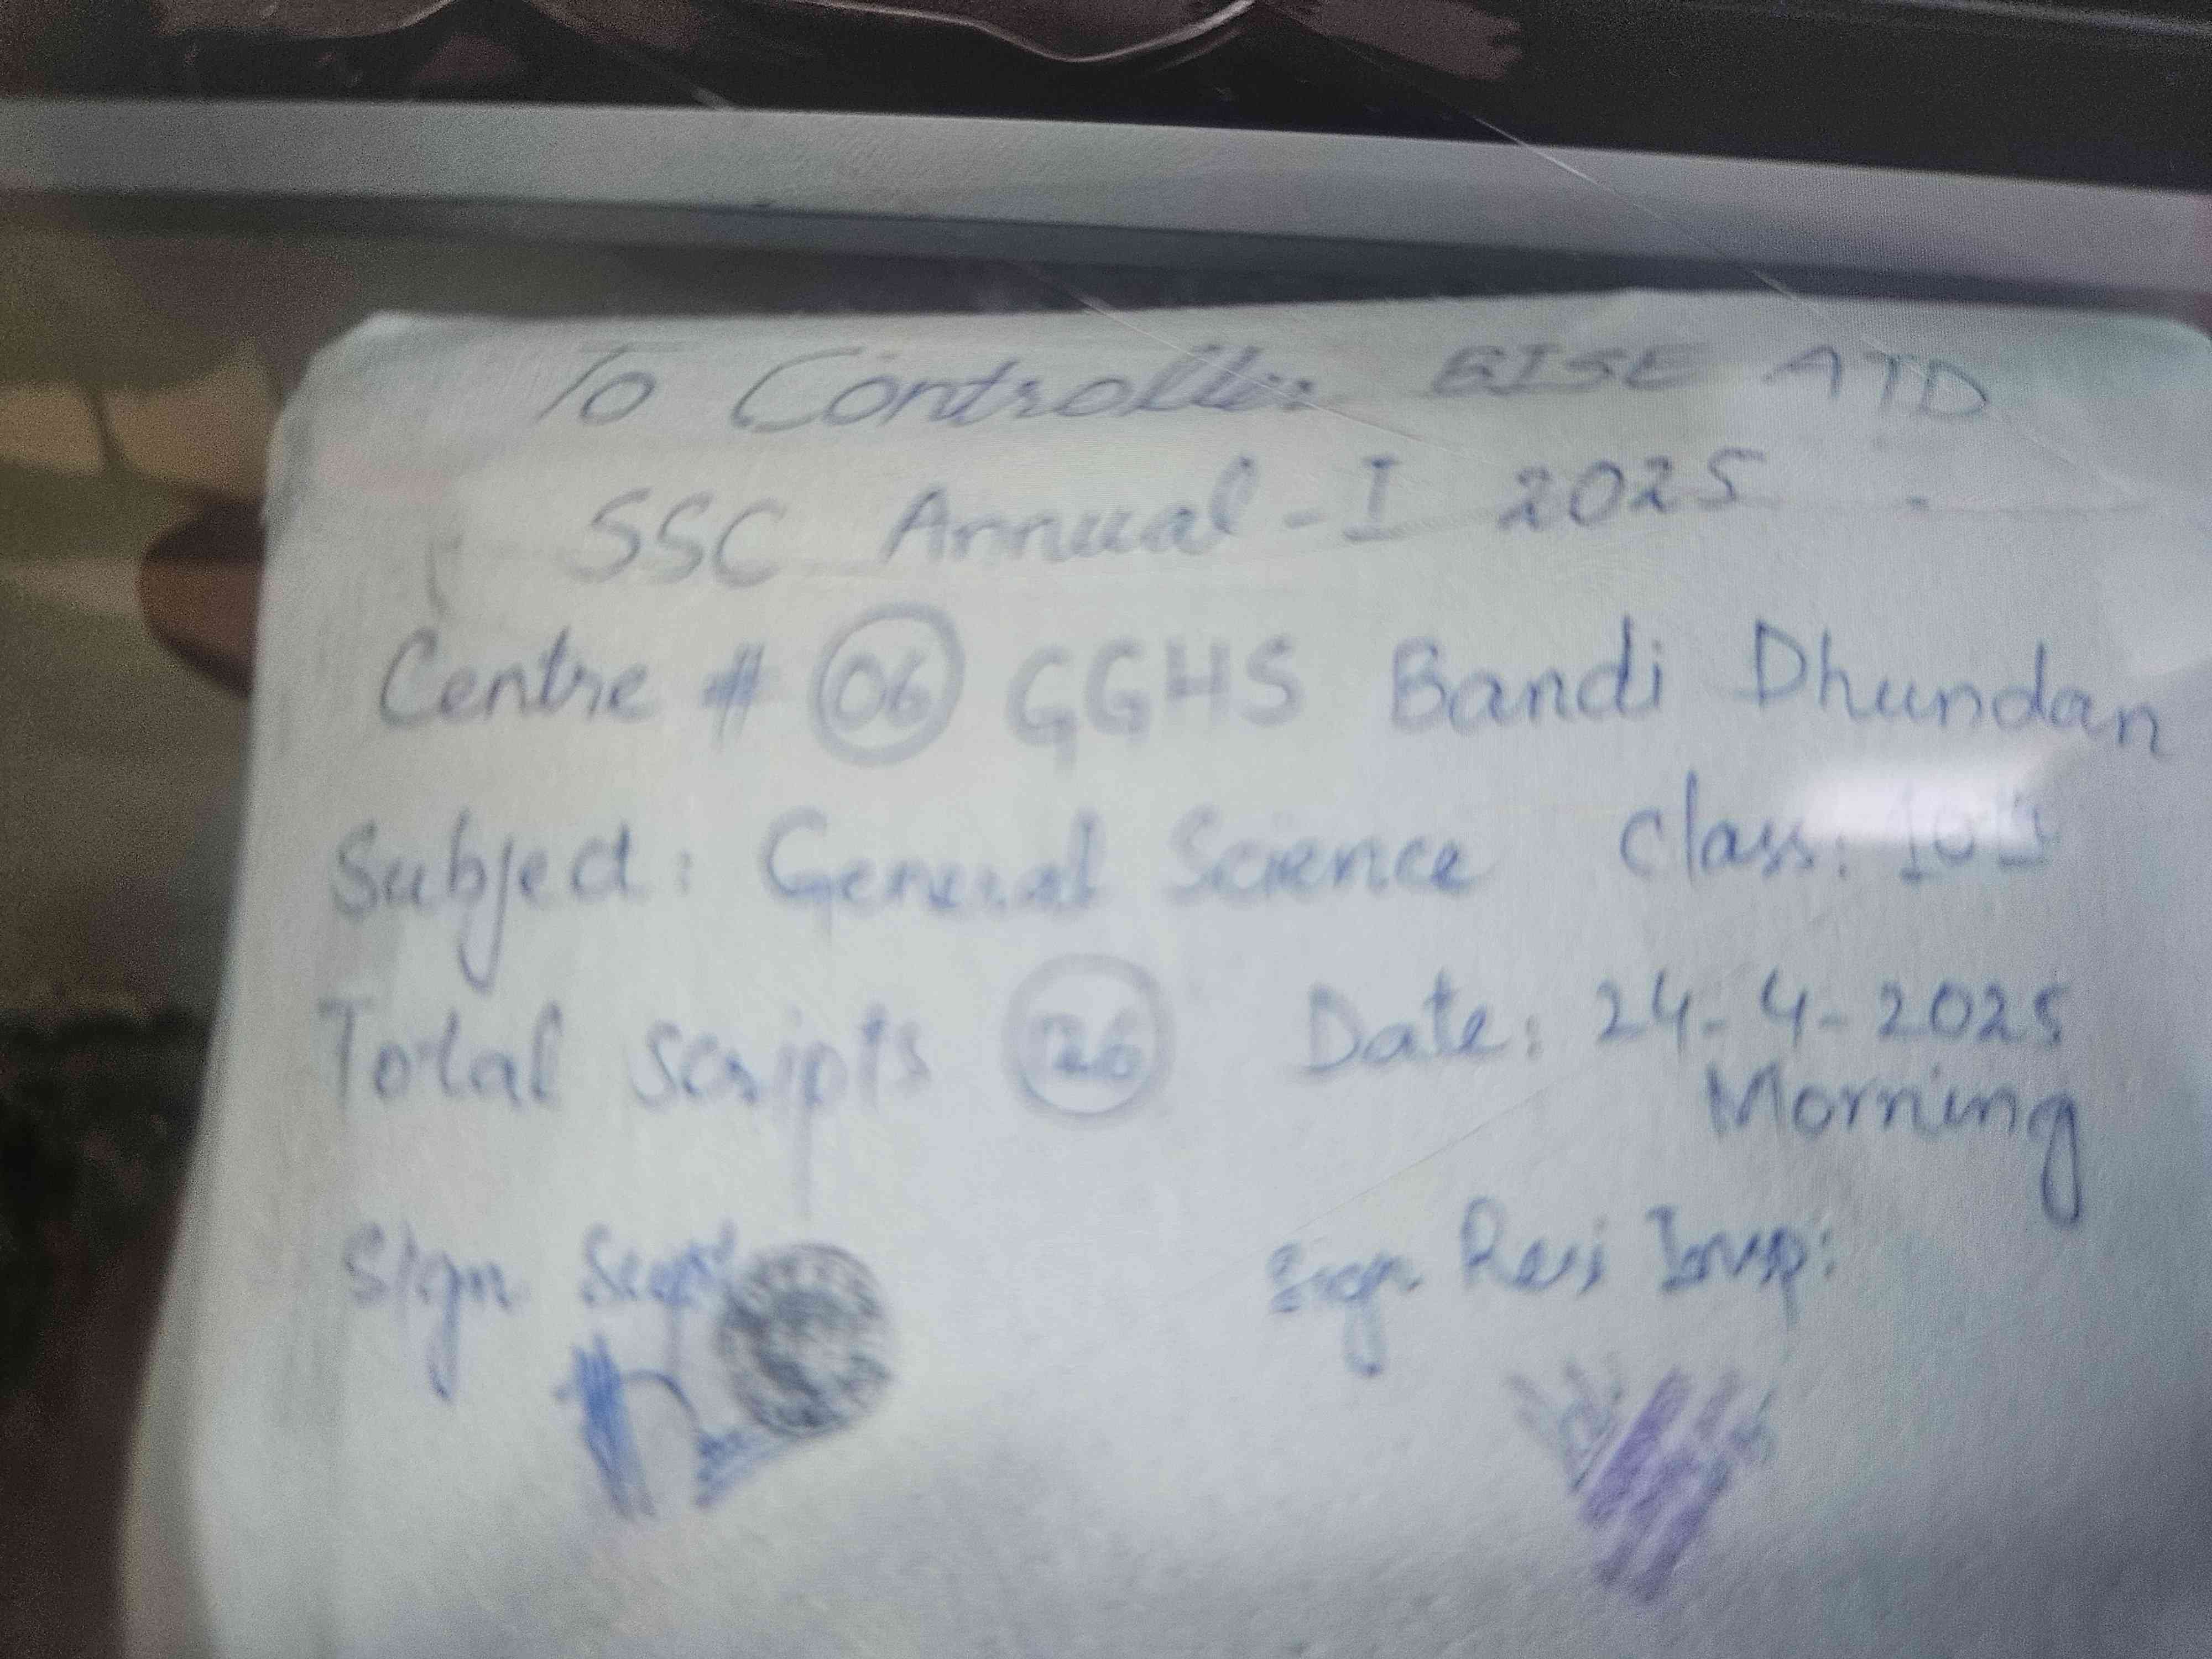 To Controller BISE ATD
SSC Annual-I 2025
Centre # 06 GGHS Bandi Dhundan
Subject: General Science Class: 10th
Total scripts 26 Date: 24-4-2025
Morning
Sign Supt Sign Res Insp: